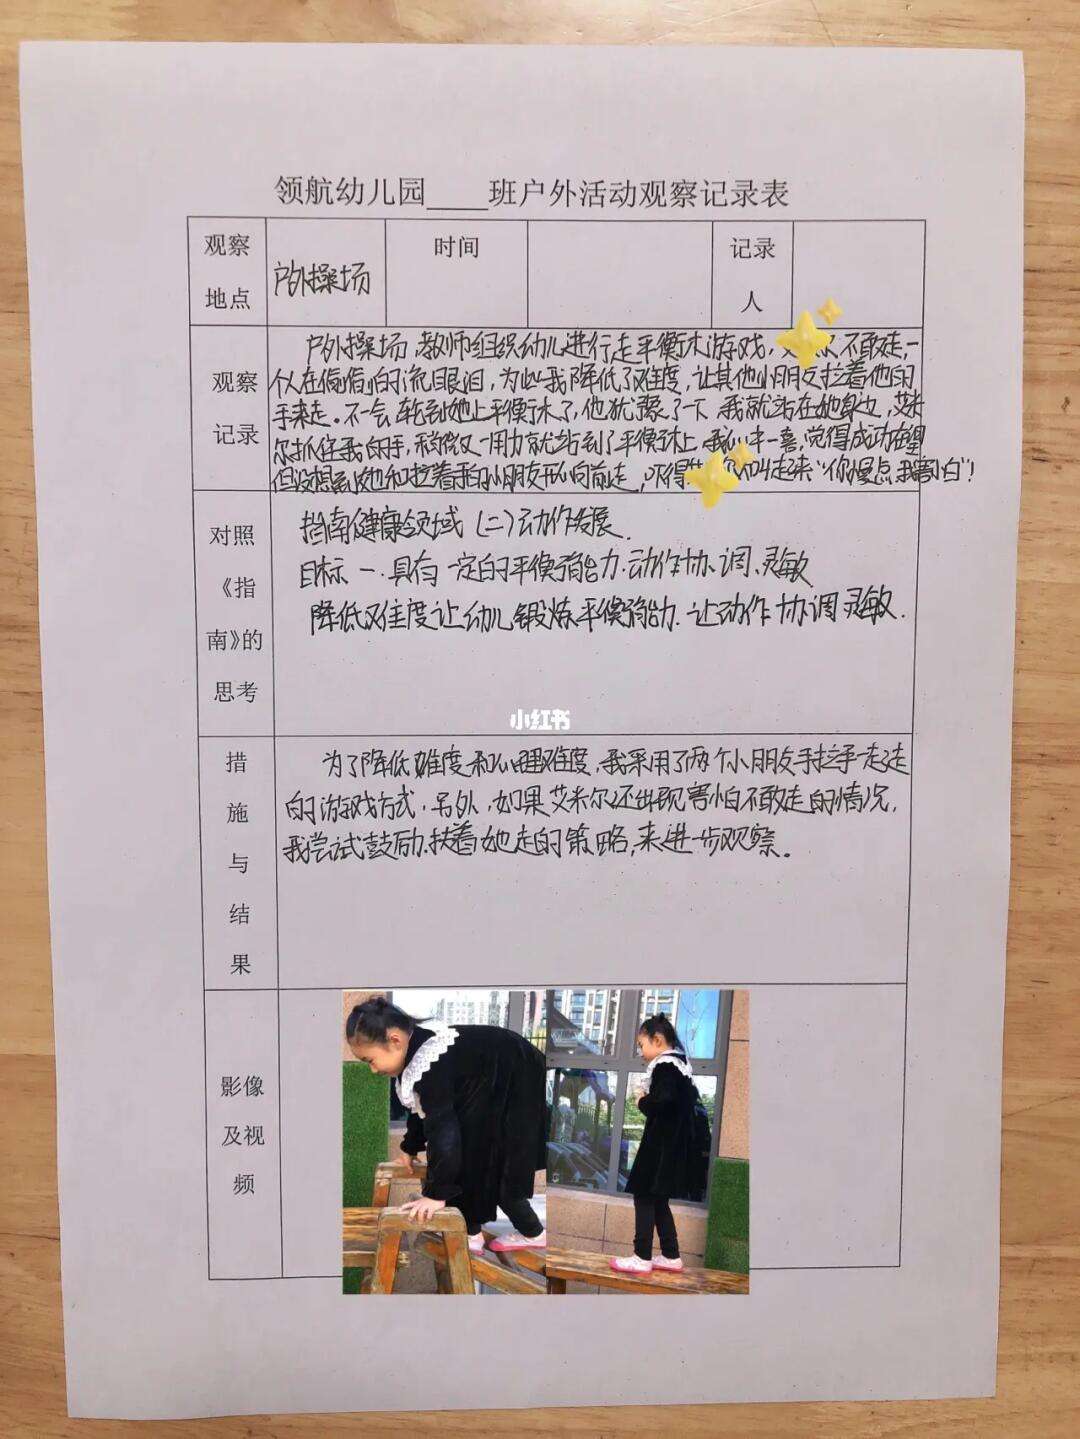 领航幼儿园____班户外活动观察记录表
观察地点
户外操场
时间
记录人
观察记录
户外操场,教师组织幼儿进行走平衡木游戏,尔不敢走,一
个人在偷偷的流眼泪,为此我降低了难度,让其他小朋友拉着他的
手来走。不一会轮到她上平衡木了,他犹豫了一下,我就站在她身边,艾米
尔抓住我的手,稍微又一用力就站到了平衡木上,我心中一喜,觉得成功在望
但没想到她和拉着手的小朋友开心向前走,不得叫起来“你慢点,我害怕”!
对照《指南》的思考
指南健康领域(二)动作发展.
目标一.具有一定的平衡能力.动作协调、灵敏
降低难度让幼儿锻炼平衡能力.让动作协调灵敏.
小红书
措施与结果
为了降低难度和心理难度,我采用了两个小朋友手拉手走走
的游戏方式,另外,如果艾米尔还出现害怕不敢走的情况,
我尝试鼓励、扶着她走的策略,来进一步观察。
影像及视频